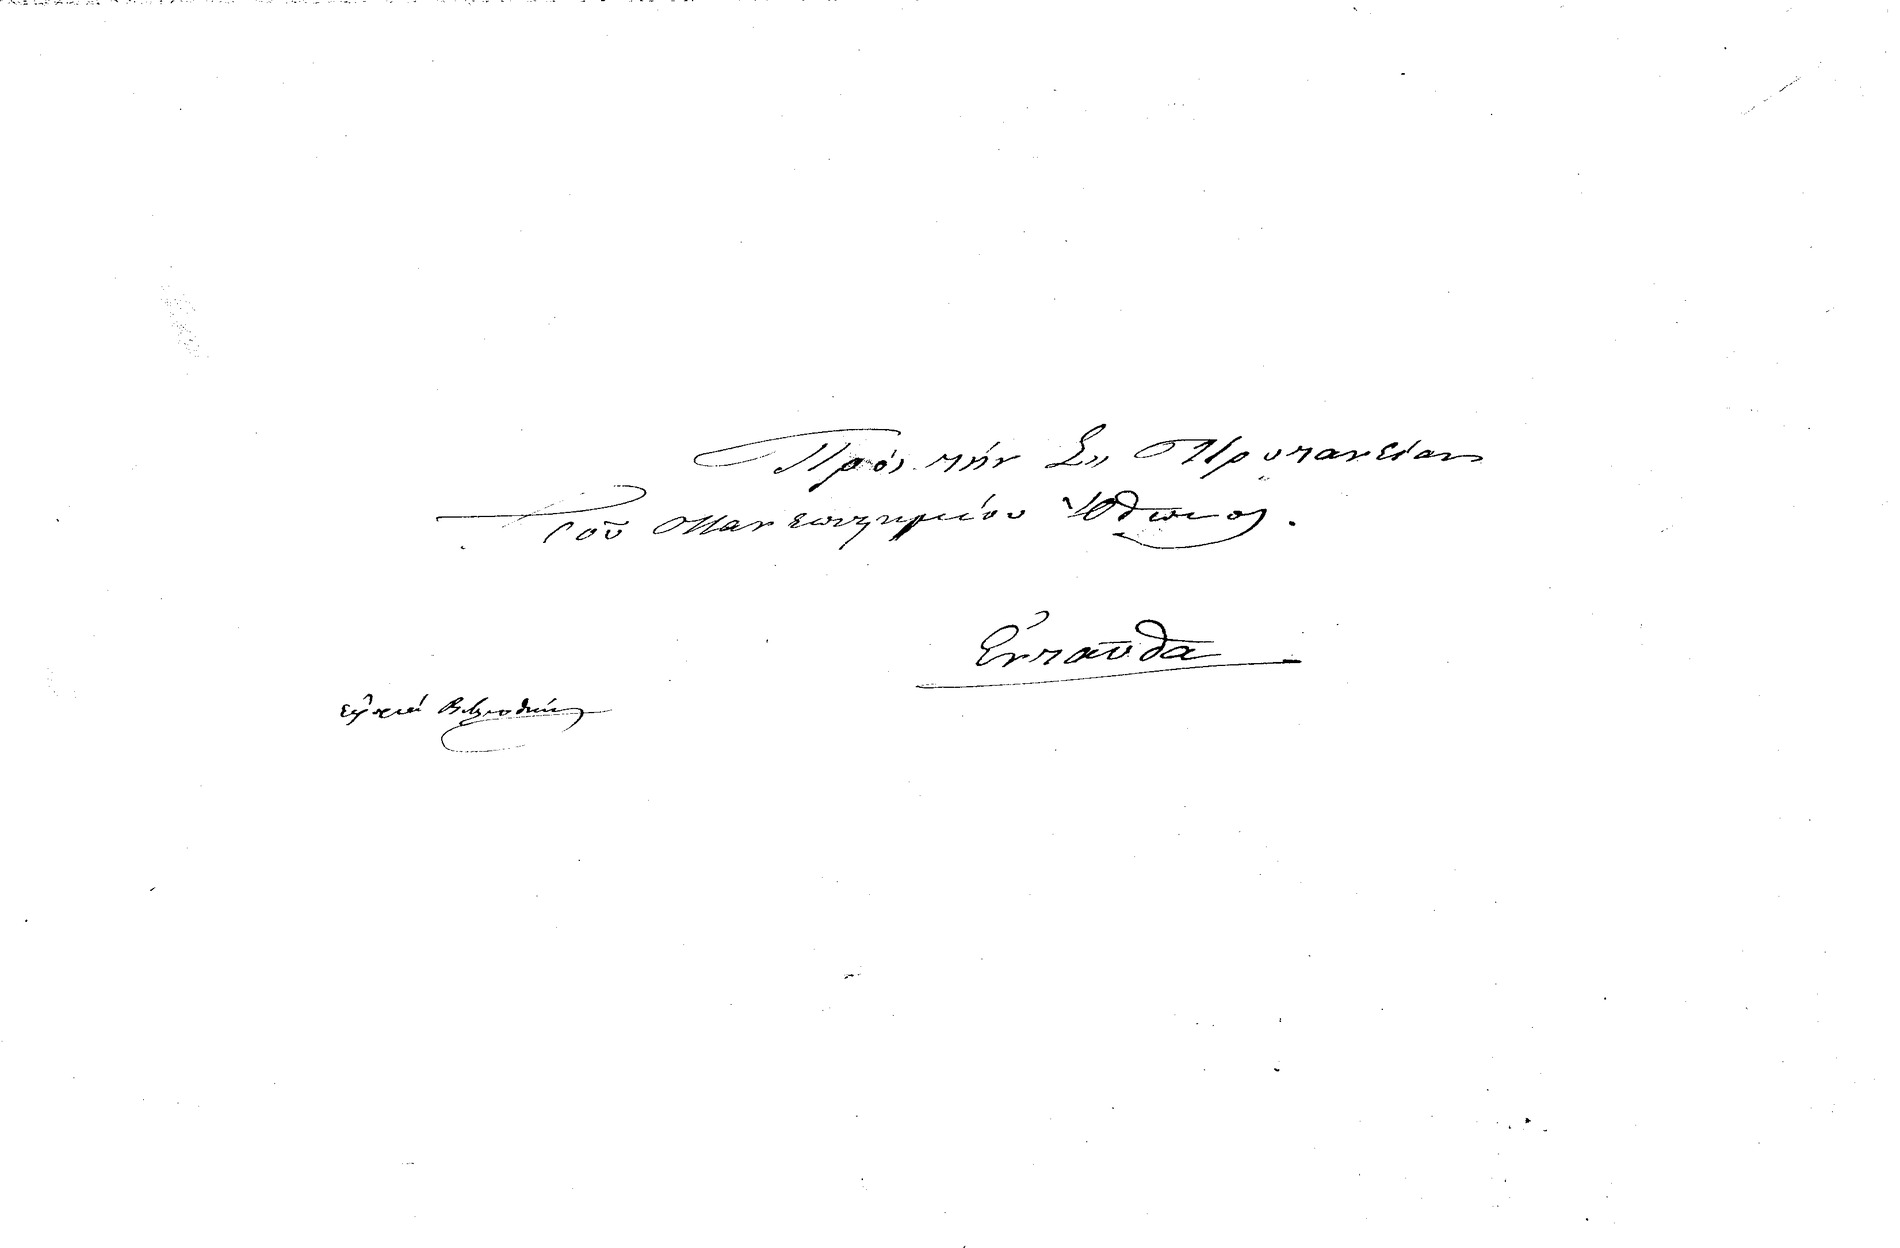 Πρός τήν Σην Πρυτανείαν
Τοῦ Πανεπιστημίου Ὄθωνος.
Ἐνταῦθα